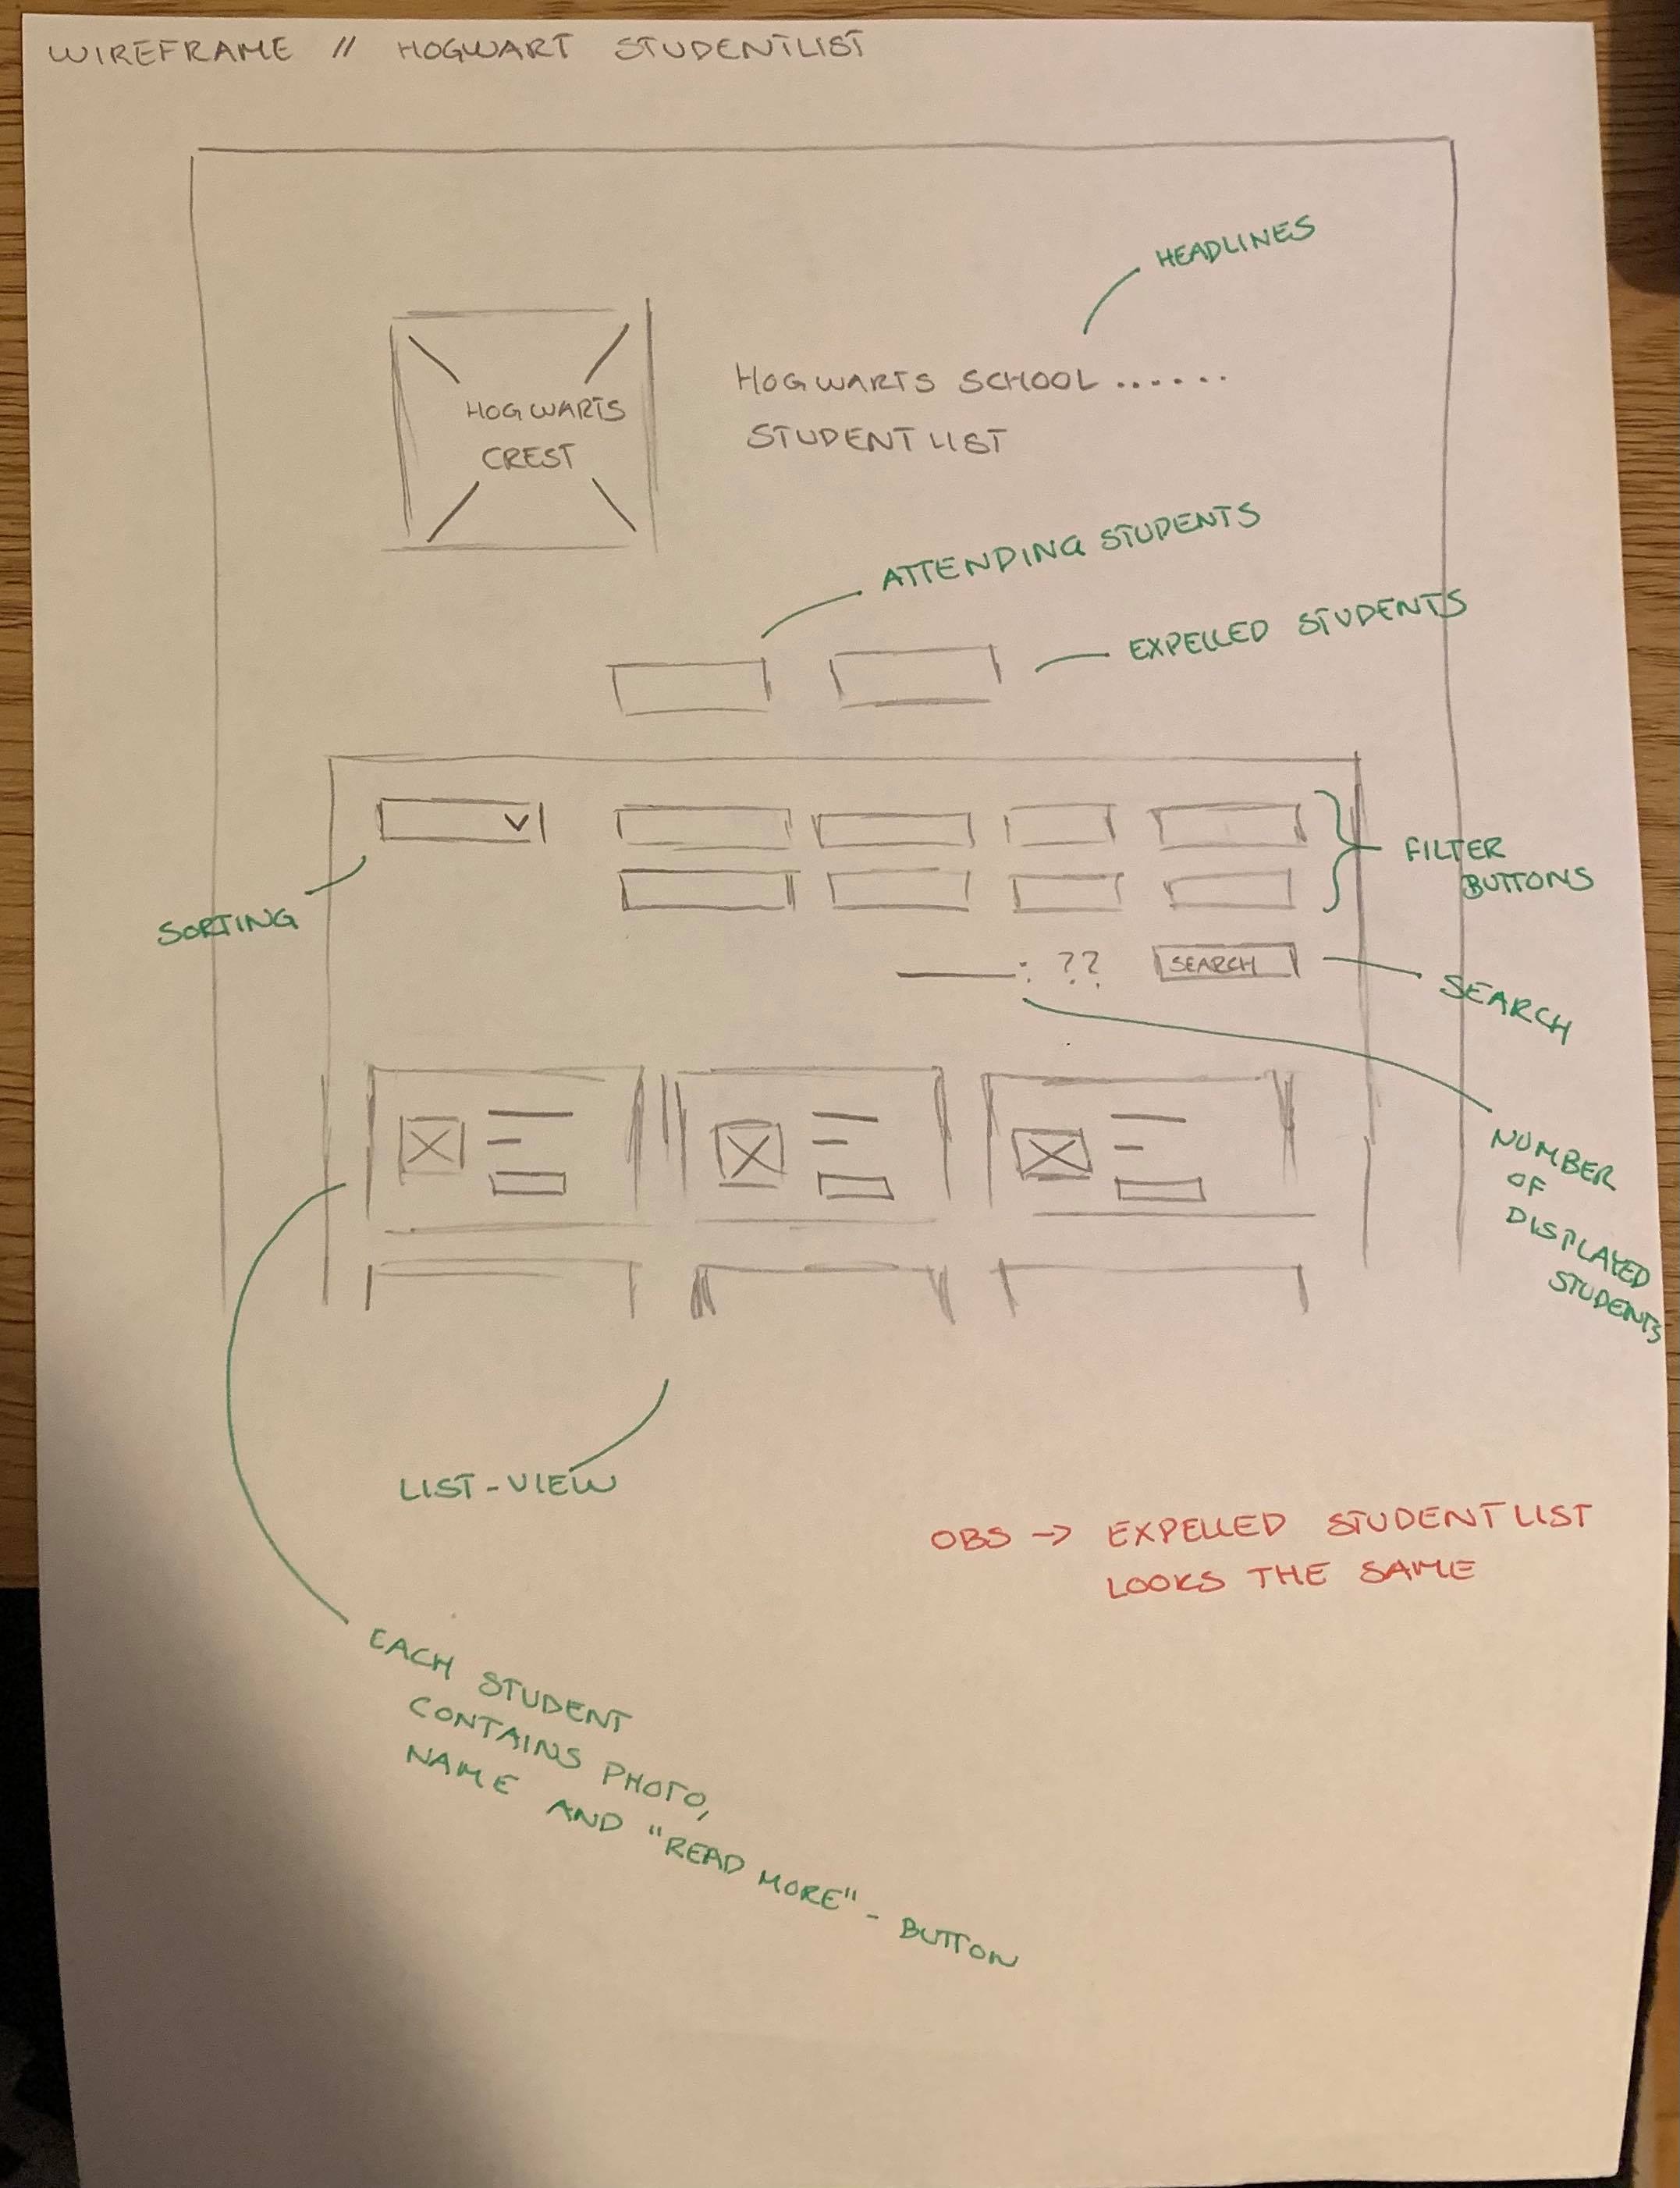 WIREFRAME // HOGWART STUDENTLIST
HEADLINES
HOGWARTS SCHOOL ......
STUDENTLIST
HOGWARTS
CREST
ATTENDING STUDENTS
EXPELLED STUDENTS
FILTER
BUTTONS
SORTING
: ??
SEARCH
SEARCH
NUMBER
OF
DISPLAYED
STUDENTS
LIST-VIEW
OBS → EXPELLED STUDENTLIST
LOOKS THE SAME
EACH STUDENT
CONTAINS PHOTO,
NAME AND "READ MORE" - BUTTON